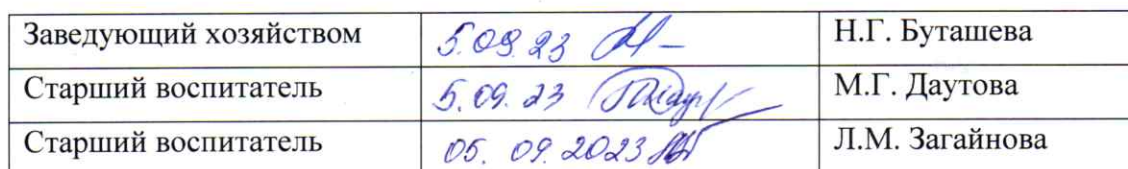 Заведующий хозяйством 5.09.23 Н.Г. Буташева
Старший воспитатель 5.09.23 М.Г. Даутова
Старший воспитатель 05.09.2023 Л.М. Загайнова